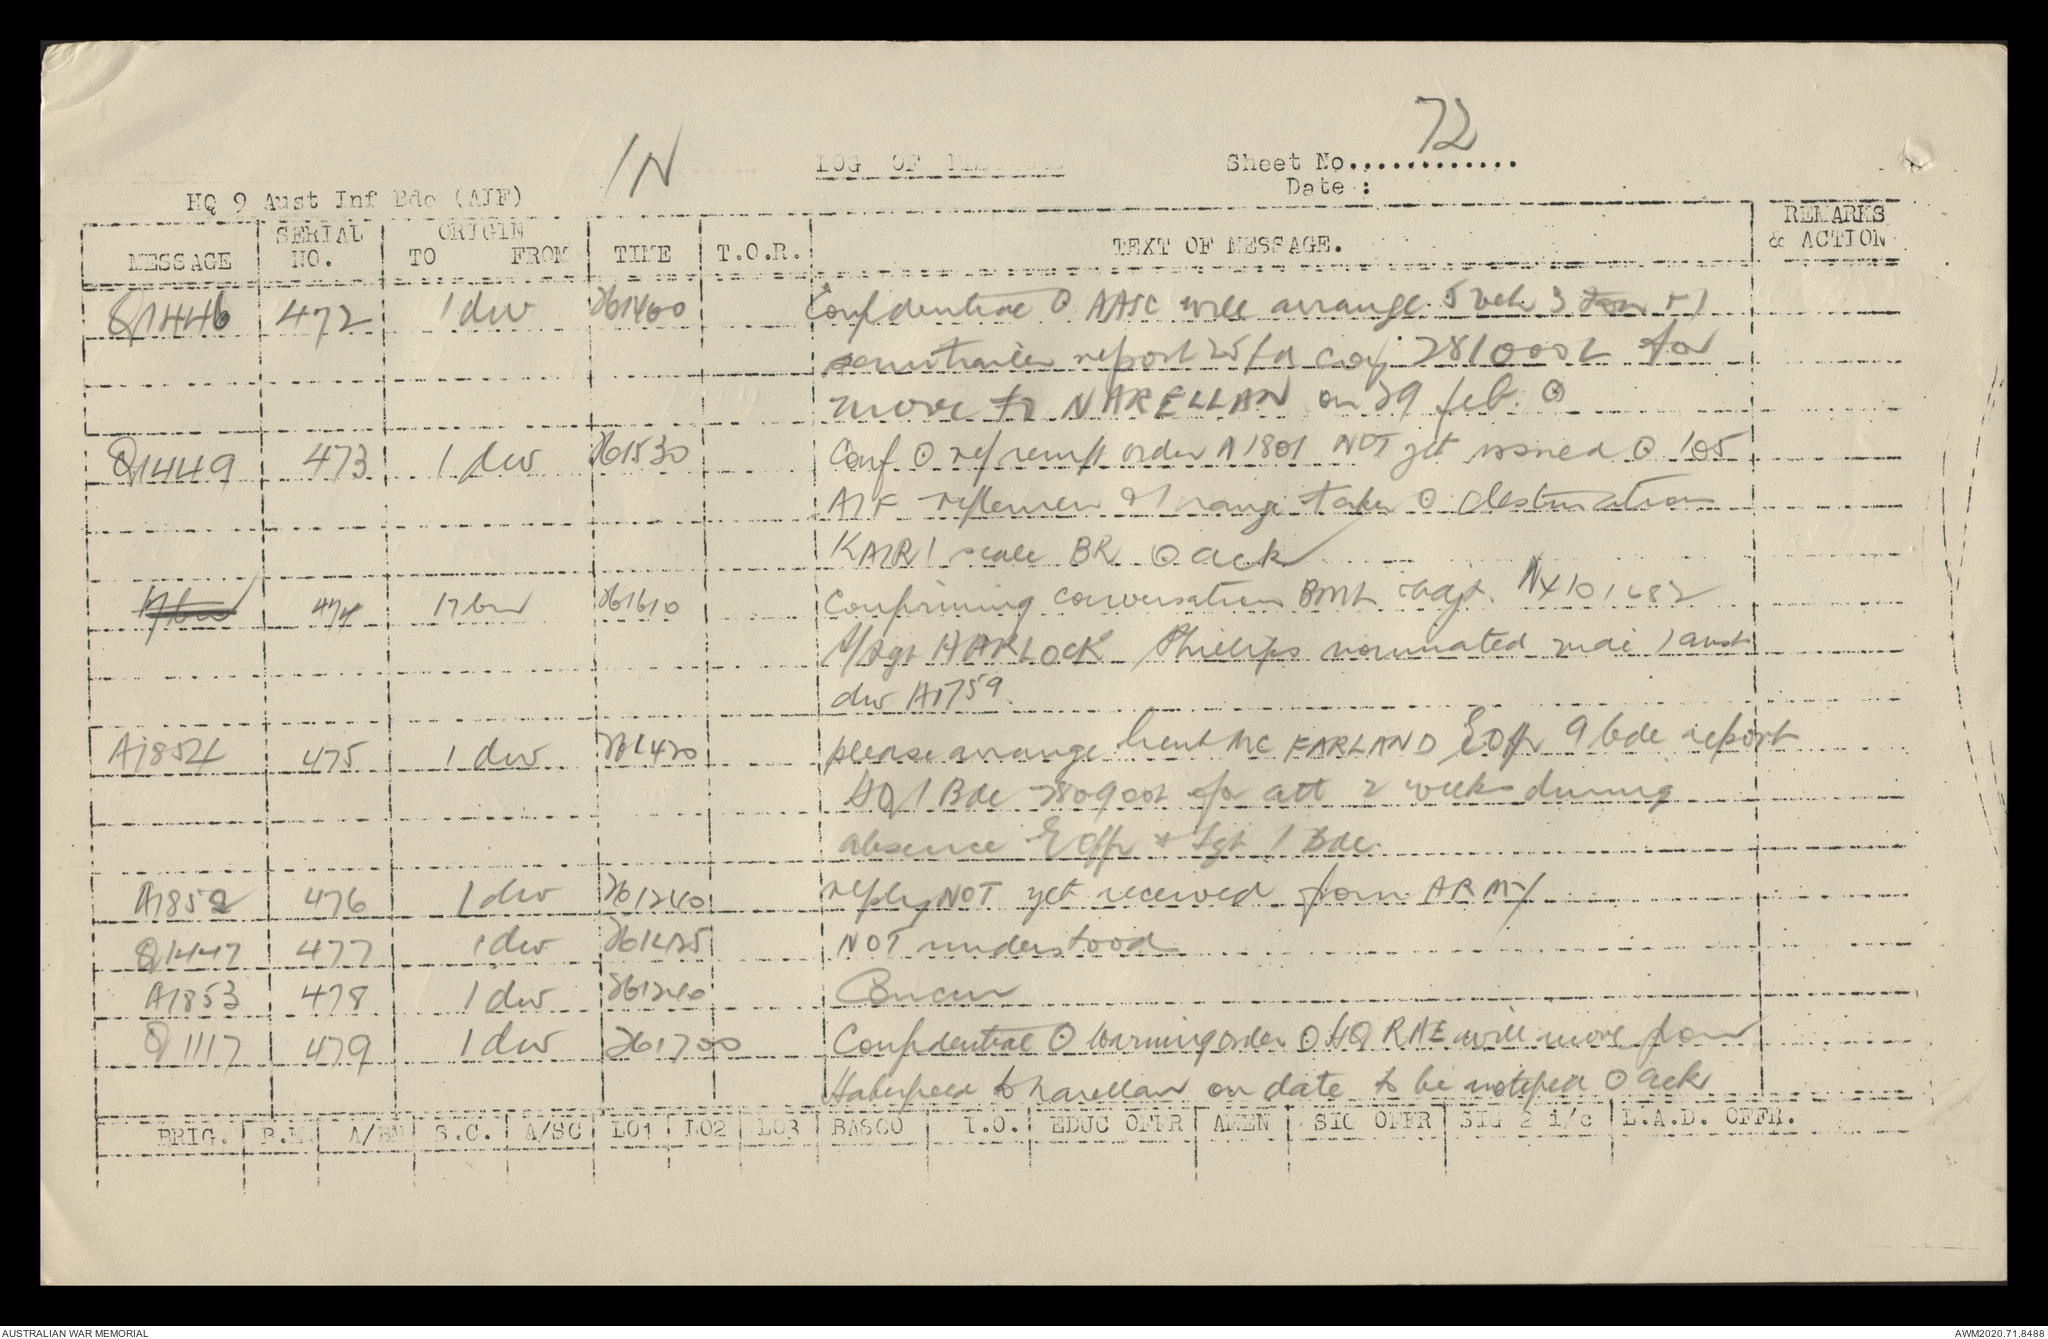 72
IN
LOG OF
Sheet No.............
Date :
HQ 9 Aust Inf Bde (AIF)
MESSAGE SERIAL NO. ORIGIN TO FROM TIME T.O.R. TEXT OF MESSAGE. REMARKS & ACTION
Q1446 472 1 div 261400 Confidential ⊙ AASC will arrange 5 veh 3 ton + 1
semitrailer report 25 fd coy 281000L for
move to NARELLAN on 29 feb. ⊙
Q1449 473 1 div 261530 Conf ⊙ ref reinft order A1801 NOT yet issued ⊙ 105
AIF riflemen taken ⊙ destination
KAIRI scale BR ⊙ ack
474 17 bn 261610 Confirming conversation adjt. NX101682
S/Sgt HARLOCK Phillips nominated 1 aust
div A1759.
A1854 475 1 div 261420 please arrange lieut MC FARLAND E Offr 9 bde report
HQ 1 Bde 280900L for att 2 weeks during
absence E Offr + Sgt 1 Bde.
A1852 476 1 div 261240 reply NOT yet received from ARMY
Q1447 477 1 div 261425 NOT understood
A1853 478 1 div 261240 Concur
Q1117 479 1 div 261700 Confidential ⊙ warning order ⊙ HQ RAE will move from
to narellan on date to be notified ⊙ ack
BRIG. B.M. A/BM S.C. A/SC LO1 LO2 LO3 BASCO I.O. EDUC OFFR AMEN SIG OFFR SIG 2 i/c L.A.D. OFFR.
AUSTRALIAN WAR MEMORIAL
AWM2020.71.8488